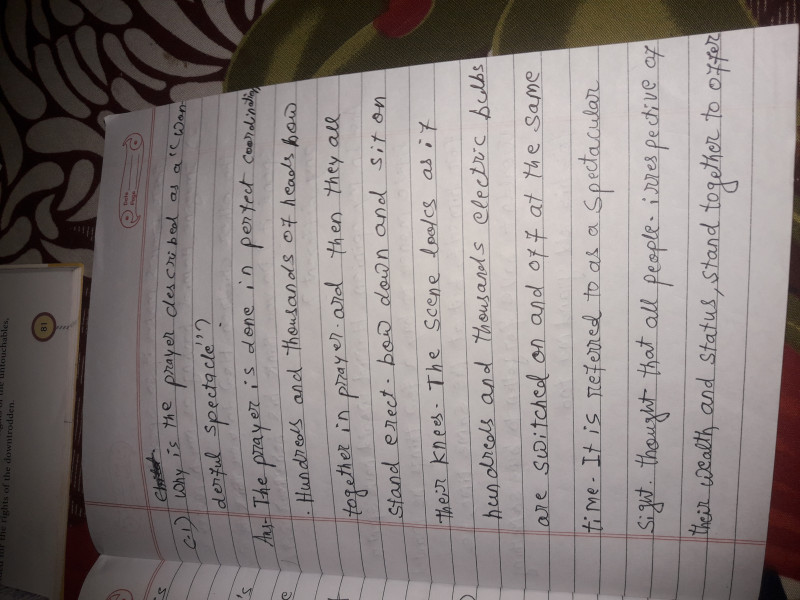 Date
Page
C.1) Why is the prayer described as a "Won
derful spectacle"?
Ans- The prayer is done in perfect coordination
. Hundreds and thousands of heads bow
together in prayer. and then they all
stand erect. bow down and sit on
their knees. The scene looks as if
hundreds and thousands electric bulbs
are switched on and off at the same
time. It is referred to as a spectacular
sight. thought that all people. irrespective of
their wealth and status, stand together to offer
the untouchables.
the rights of the downtrodden.
81